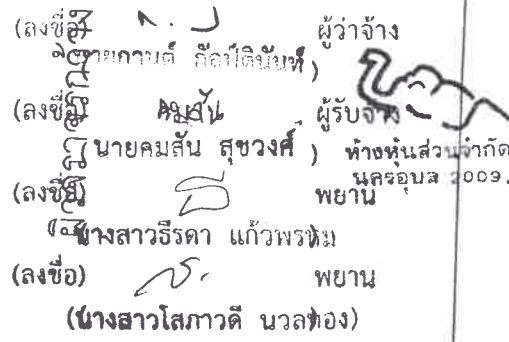 (ลงชื่อ) ผู้ว่าจ้าง
นายกานต์ กัลป์ตินันท์ )
(ลงชื่อ) คมสัน ผู้รับจ้าง
นายคมสัน สุชวงศ์ ) ห้างหุ้นส่วนจำกัด
นครอุบล 2009
(ลงชื่อ) พยาน
(นางสาวธีรดา แก้วพรหม)
(ลงชื่อ) ส. พยาน
(นางสาวโสภาวดี นวลทอง)